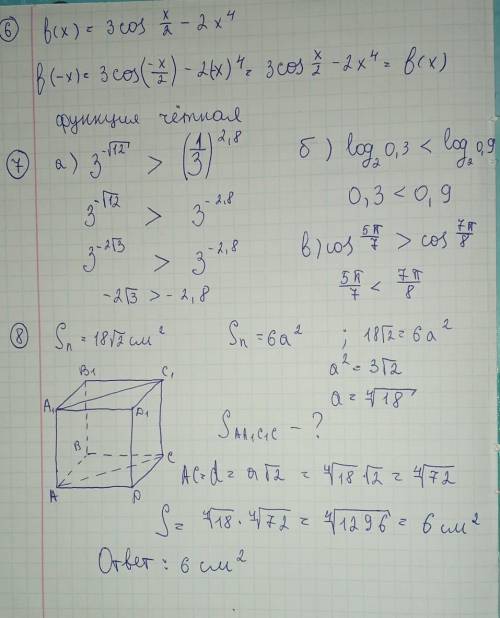 ⑥ f(x) = 3cos x/2 - 2x⁴
f(-x) = 3cos(-x/2) - 2(-x)⁴ = 3cos x/2 - 2x⁴ = f(x)
функция чётная
⑦ а) 3^(-√12) > (1/3)^(2,8)
3^(-√12) > 3^(-2,8)
3^(-2√3) > 3^(-2,8)
-2√3 > -2,8
б) log₂ 0,3 < log₂ 0,9
0,3 < 0,9
в) cos 5π/7 > cos 7π/8
5π/7 < 7π/8
⑧ Sп = 18√2 см²
Sп = 6a² ; 18√2 = 6a²
a² = 3√2
a = ⁴√18
B1 C1
A1 D1
B C
A D
S AA1C1C - ?
AC = d = a√2 = ⁴√18 √2 = ⁴√72
S = ⁴√18 · ⁴√72 = ⁴√1296 = 6 см²
Ответ: 6 см²